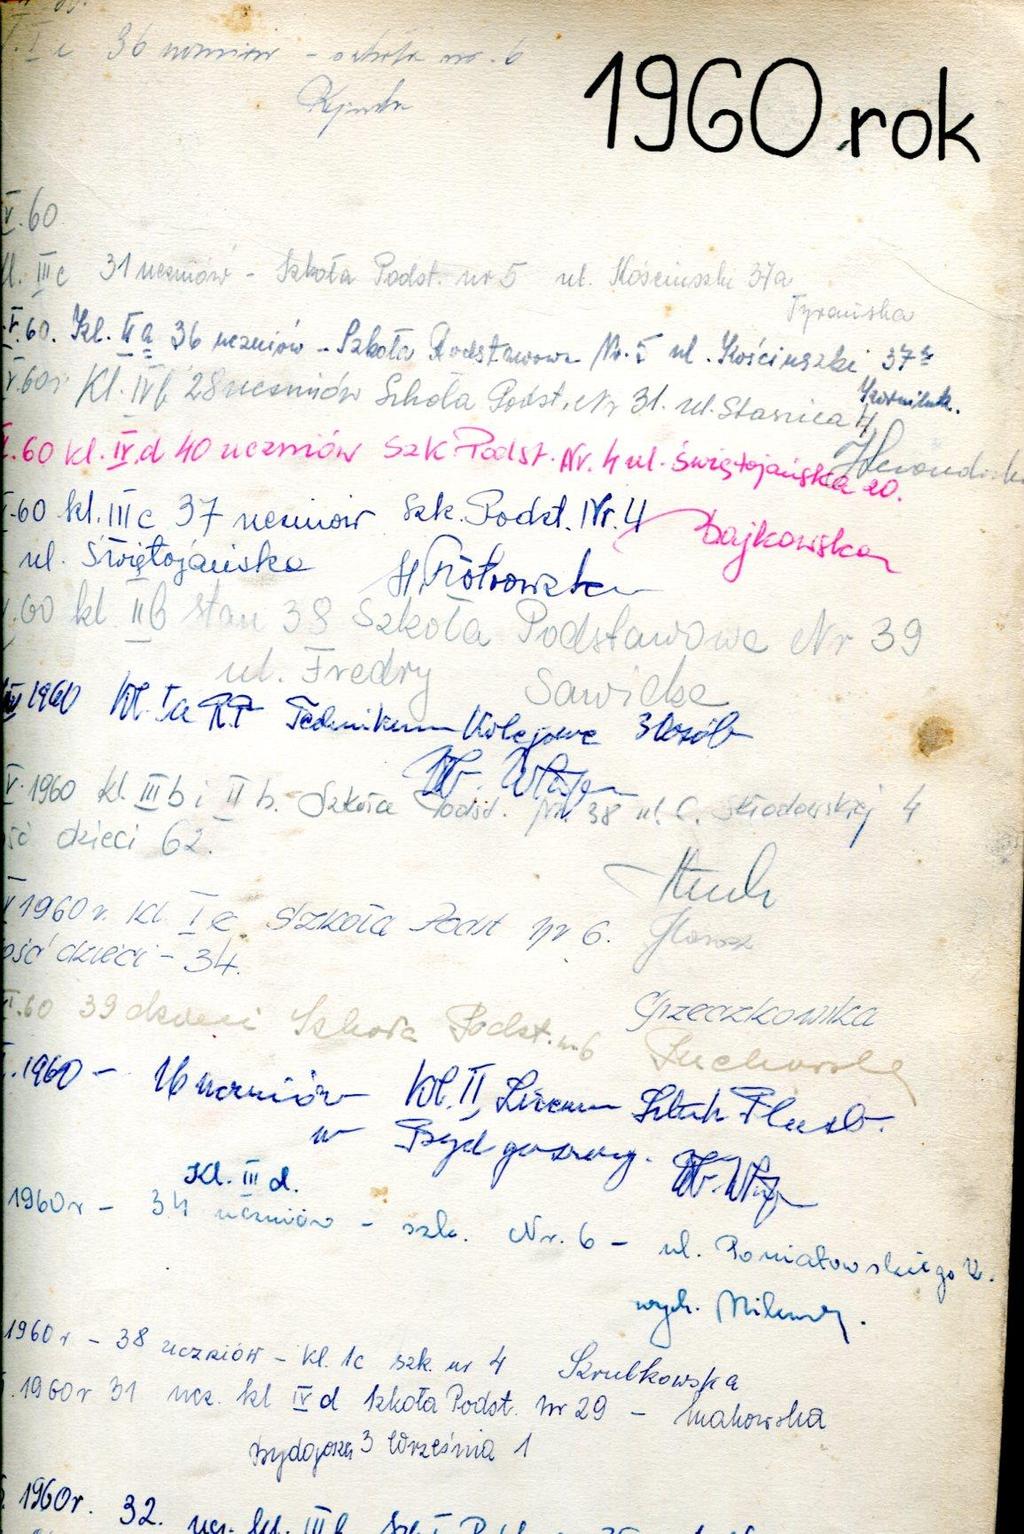 I c 36 uczniów - szkoła nr. 6
1960 rok
V.60
kl. III c 31 uczniów - Szkoła Podst. nr 5 ul. Kościuszki 37a
Tyrańska
V.60. Kl. II a 36 uczniów - Szkoła Podstawowa Nr. 5 ul. Kościuszki 37a
V.60r Kl. IV b 28 uczniów Szkoła Podst. Nr 31. ul. Staszica 4
.60 kl. IV d 40 uczniów Szk. Podst. Nr. 4 ul. Świętojańska 20.
Dajkowska
.60 kl. III c 37 uczniów Szk. Podst. Nr. 4
ul. Świętojańska H. Piotrowska
.60 kl. II b stan 38 Szkoła Podstawowa Nr 39
ul. Fredry Sawicka
1960 Kl. Ia Technikum Kolejowe 30 osób
V.1960 kl. III b i II b. Szkoła Podst. Nr. 38 ul. C. Skłodowskiej 4
ść dzieci 62.
1960 r. Kl. I c Szkoła Podst nr 6.
ość dzieci - 34.
Grzeczkowska
.60 39 dzieci Szkoła Podst. nr 6
.1960 - 16 uczniów Kl. II, Liceum Sztuk Plast.
w Bydgoszczy.
Kl. III d.
1960 r - 34 uczniów - szk. Nr. 6 - ul. Poniatowskiego
wych.
1960 r - 38 uczniów - kl. 1c szk. nr 4 Szrubkowska
.1960 r 31 ucz. kl IV d Szkoła Podst. nr 29 - Makowska
Bydgoszcz 3 Września 1
.1960r. 32. ucz. kl. III b